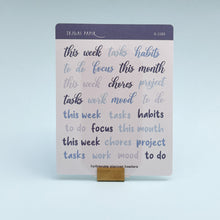 this week tasks habits
to do focus this month
this week chores project
tasks work mood to do
this week tasks habits
to do focus this month
this week chores project
tasks work mood to do